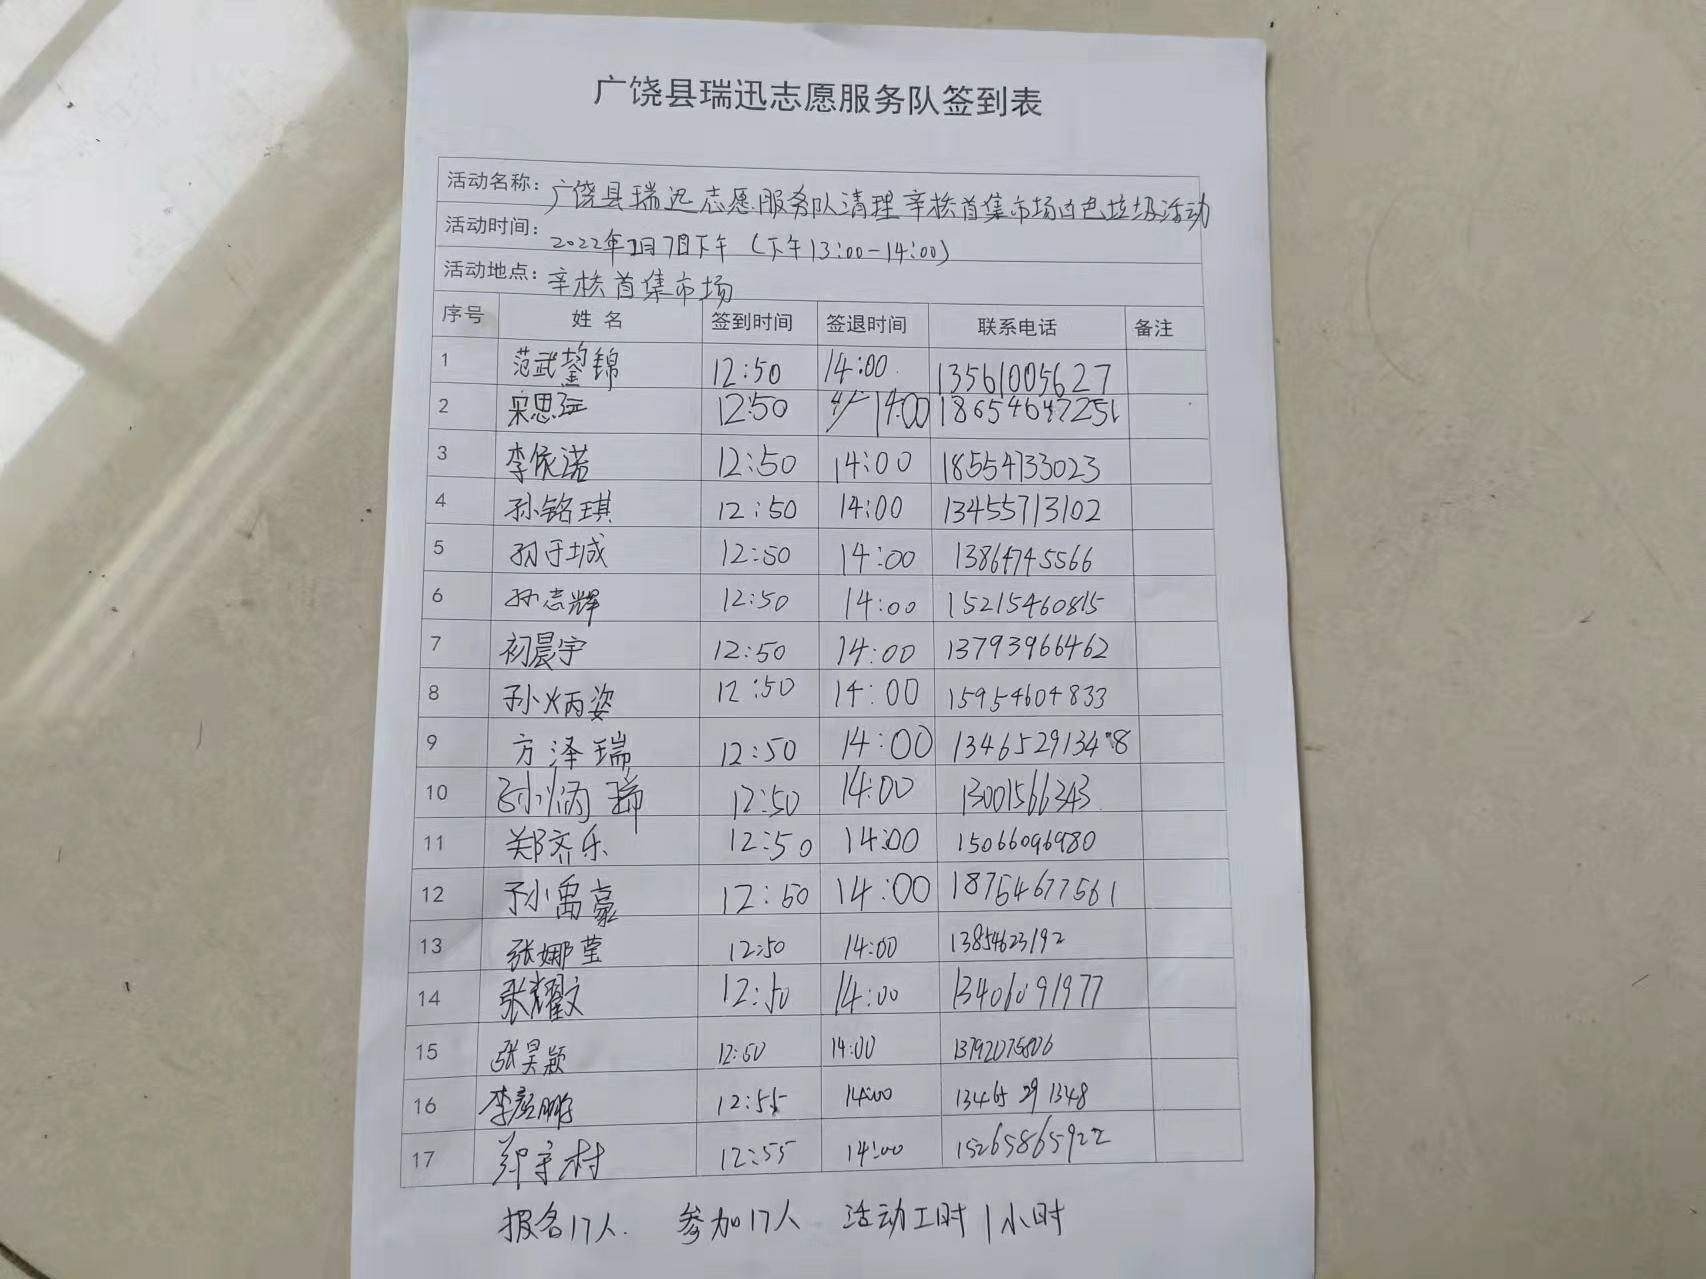 广饶县瑞迅志愿服务队签到表
活动名称: 广饶县瑞迅志愿服务队清理辛桥首集市场白色垃圾活动
活动时间: 2022年 月7日下午 (下午13:00-14:00)
活动地点: 辛桥首集市场
序号 姓名 签到时间 签退时间 联系电话 备注
1 范武 锦 12:50 14:00 13561005627
2 宋思 12:50 14:00 18654647251
3 李依诺 12:50 14:00 18554733023
4 孙铭琪 12:50 14:00 13455713102
5 孙于城 12:50 14:00 13864745566
6 孙志辉 12:50 14:00 15215460815
7 初晨宇 12:50 14:00 13793966462
8 孙炳姿 12:50 14:00 15954604833
9 方泽瑞 12:50 14:00 13465291348
10 孙炳瑞 12:50 14:00 13001566343
11 郑齐乐 12:50 14:00 15066096980
12 孙禹豪 12:50 14:00 18754677561
13 张娜莹 12:50 14:00 13854623192
14 张耀文 12:50 14:00 13406091977
15 张昊颖 12:50 14:00 13792075806
16 李彦鹏 12:55 14:00 13465291348
17 郑宇村 12:55 14:00 15265865922
报名17人. 参加17人 活动工时1小时